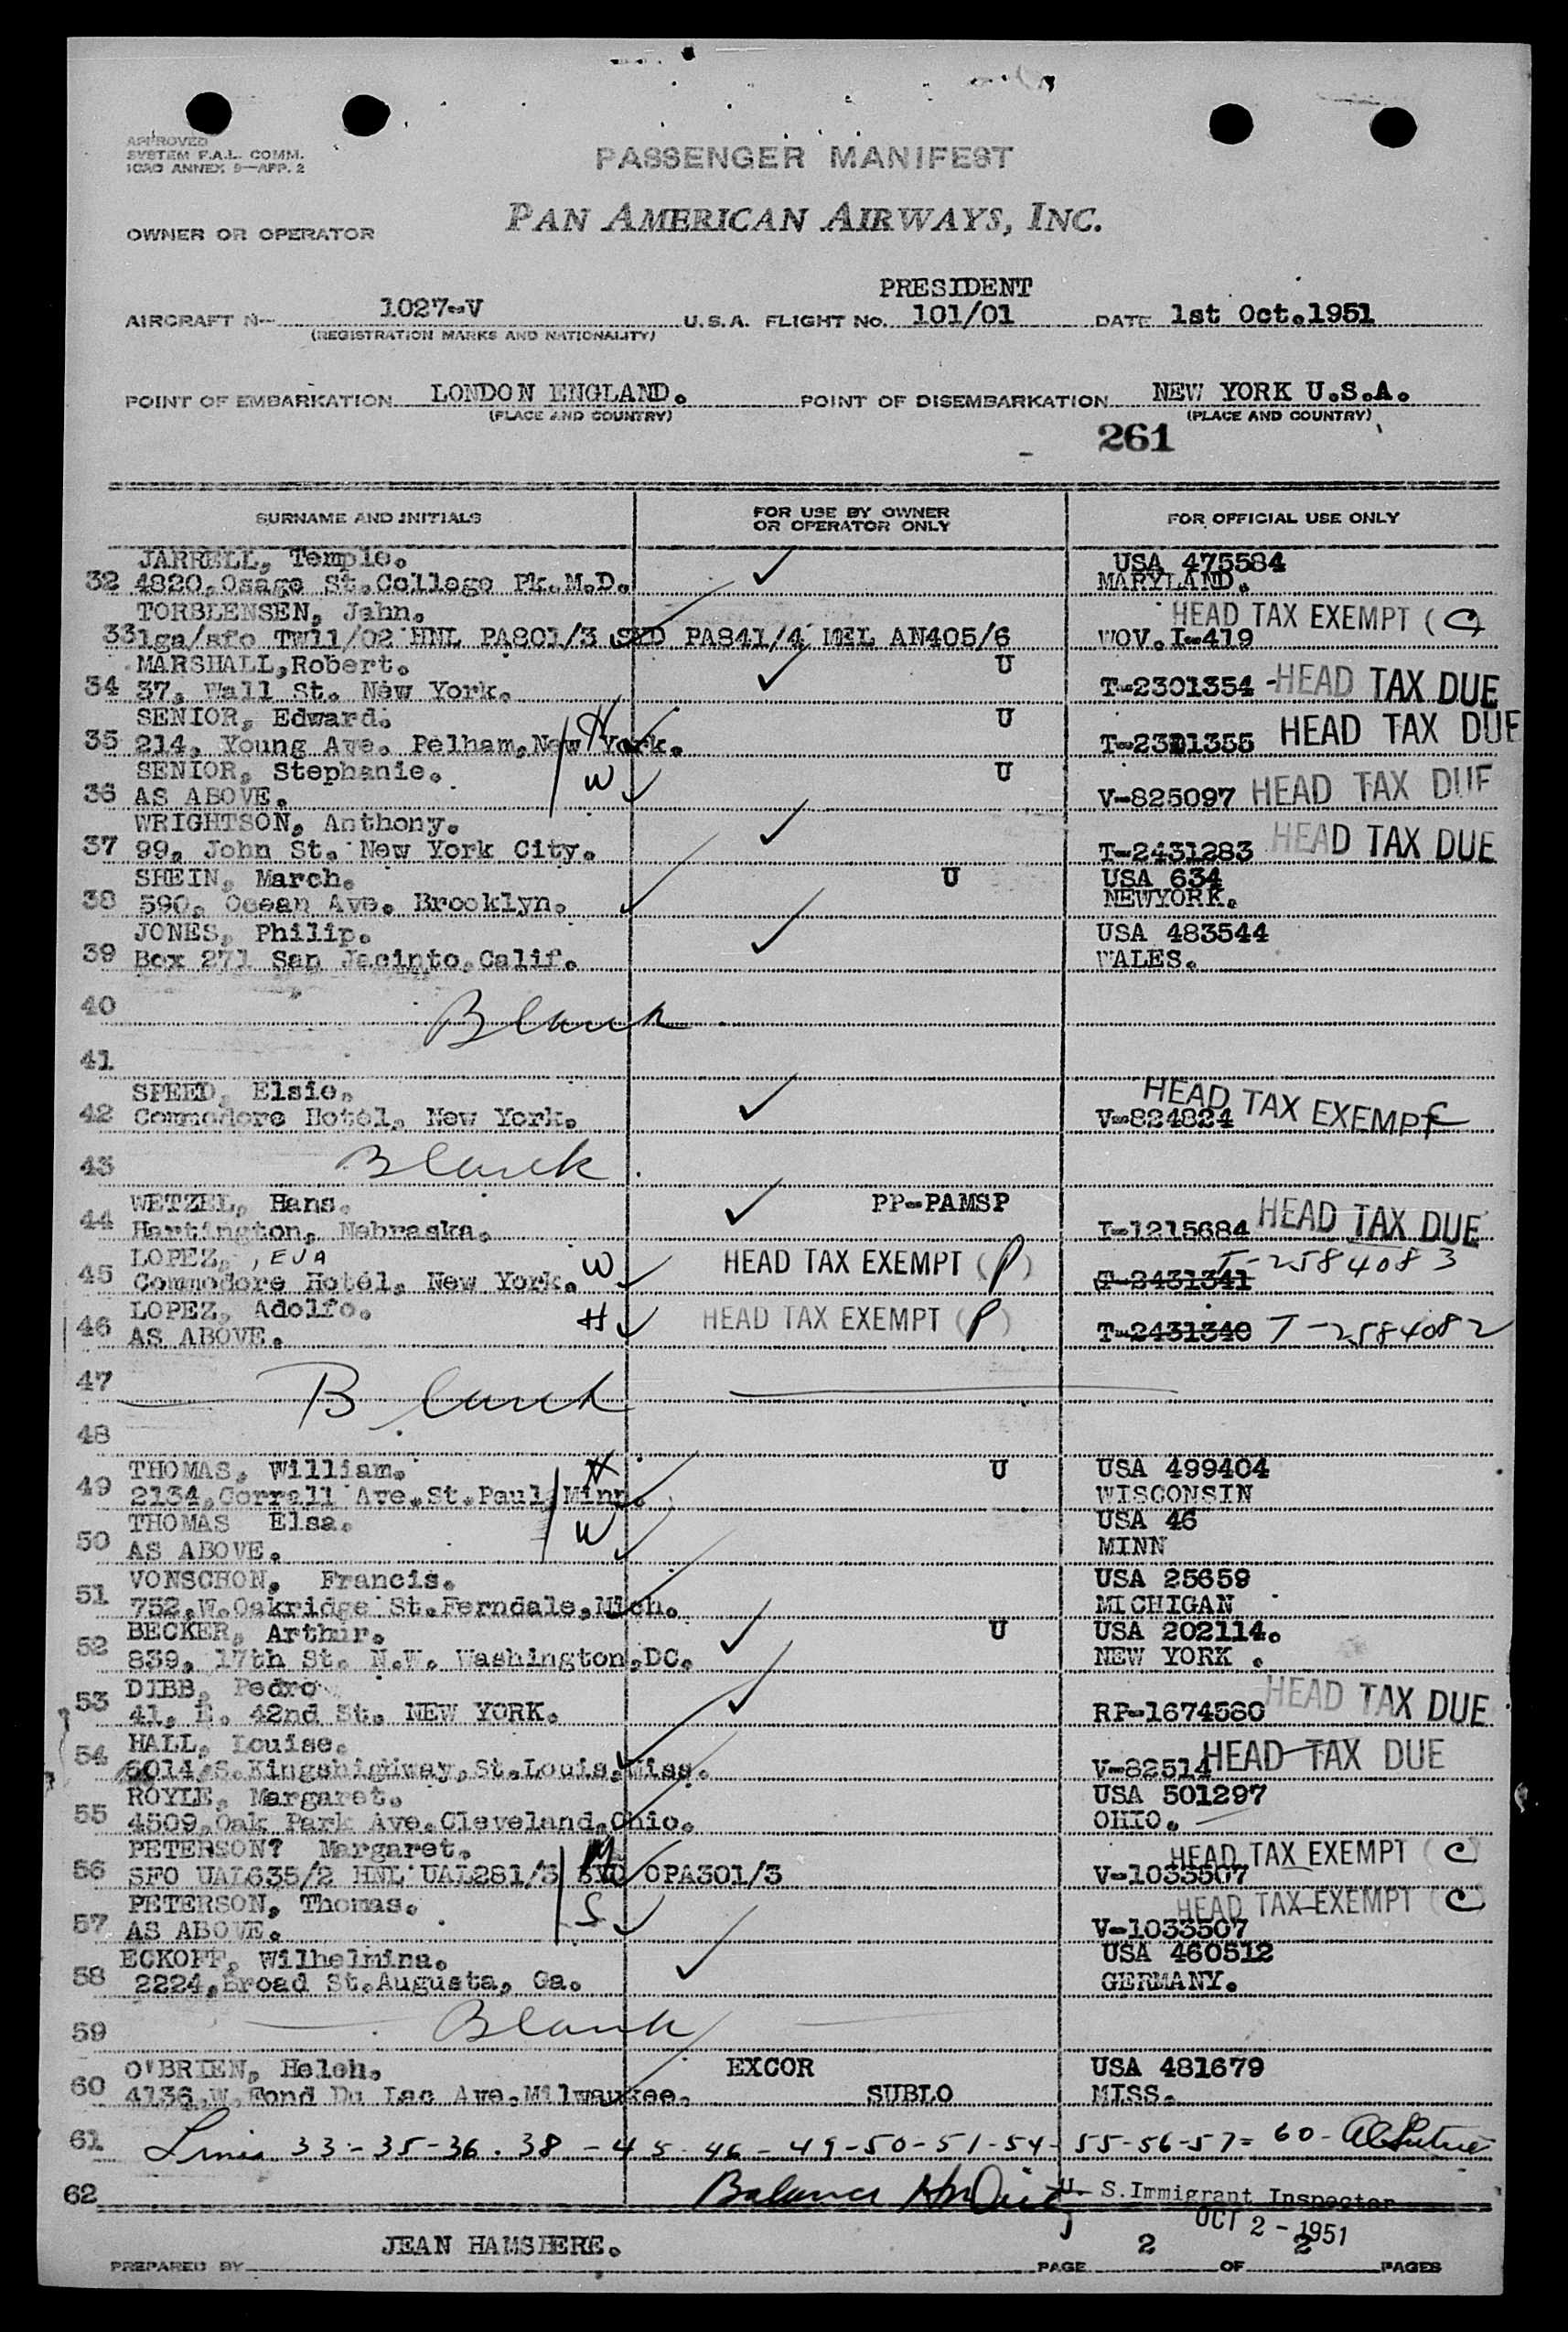 APPROVED
SYSTEM F.A.L. COMM.
ICAO ANNEX 9—APP. 2
PASSENGER MANIFEST
OWNER OR OPERATOR PAN AMERICAN AIRWAYS, INC.
PRESIDENT
AIRCRAFT N- 1027-V U.S.A. FLIGHT NO. 101/01 DATE 1st Oct.1951
(REGISTRATION MARKS AND NATIONALITY)
POINT OF EMBARKATION LONDON ENGLAND. POINT OF DISEMBARKATION NEW YORK U.S.A.
(PLACE AND COUNTRY) (PLACE AND COUNTRY)
261
SURNAME AND INITIALS FOR USE BY OWNER OR OPERATOR ONLY FOR OFFICIAL USE ONLY
JARRELL, Temple. USA 475584
32 4820,Osage St.College Pk.M.D. MARYLAND.
TORBLENSEN, Jahn. HEAD TAX EXEMPT (C)
33 lga/sfo TW11/02 HNL PA801/3 SYD PA841/4 MEL AN405/6 WOV.I-419
MARSHALL,Robert. U
34 37, Wall St. New York. T-2301354 -HEAD TAX DUE
SENIOR, Edward. H U
35 214, Young Ave. Pelham,New York. T-2301355 HEAD TAX DUE
SENIOR, Stephanie. W U
36 AS ABOVE. V-825097 HEAD TAX DUE
WRIGHTSON, Anthony.
37 99, John St. New York City. T-2431283 HEAD TAX DUE
SHEIN, March. U USA 634
38 590, Ocean Ave. Brooklyn. NEWYORK.
JONES, Philip. USA 483544
39 Box 271 San Jacinto,Calif. WALES.
40 Blank
41
SPEED, Elsie. HEAD TAX EXEMPT C
42 Commodore Hotel, New York. V-824824
43 Blank
WETZEL, Hans. PP-PAMSP
44 Hartington, Nebraska. I-1215684 HEAD TAX DUE
LOPEZ, , EVA W HEAD TAX EXEMPT (P) T-2584083
45 Commodore Hotel, New York. T-2431341
LOPEZ, Adolfo. H HEAD TAX EXEMPT (P)
46 AS ABOVE. T-2431340 T-2584082
47 Blank
48
THOMAS, William. H U USA 499404
49 2134,Correll Ave.St.Paul Minn. WISCONSIN
THOMAS Elsa. W USA 46
50 AS ABOVE. MINN
VONSCHON, Francis. USA 25659
51 752,W.Oakridge St.Ferndale,Mich. MICHIGAN
BECKER, Arthur. U USA 202114.
52 839, 17th St. N.W. Washington,DC. NEW YORK .
DIBB, Pedro
53 41, E. 42nd St. NEW YORK. RP-1674580 HEAD TAX DUE
HALL, Louise.
54 6014,S.Kingshighway,St.Louis,Miss. V-82514 HEAD TAX DUE
ROYLE, Margaret. USA 501297
55 4509,Oak Park Ave.Cleveland,Ohio. OHIO.
PETERSON? Margaret. M HEAD TAX EXEMPT (C)
56 SFO UAL635/2 HNL UAL281/3 SYD OPA301/3 V-1033507
PETERSON, Thomas. S HEAD TAX EXEMPT (C)
57 AS ABOVE. V-1033507
ECKOFF, Wilhelmina. USA 460512
58 2224,Broad St.Augusta, Ga. GERMANY.
59 Blank
O'BRIEN, Helen. EXCOR USA 481679
60 4136,W.Fond Du Lac Ave.Milwaukee. SUBLO MISS.
61 Lines 33-35-36-38-45-46-49-50-51-54-55-56-57-60-
62 Balance U. S. Immigrant Inspector
OCT 2 - 1951
PREPARED BY JEAN HAMSHERE. PAGE 2 OF 2 PAGES